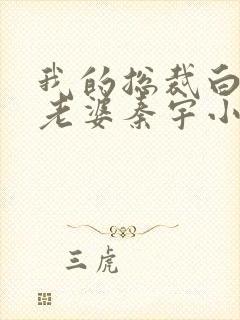 我的总裁白
老婆秦宇小
三虎